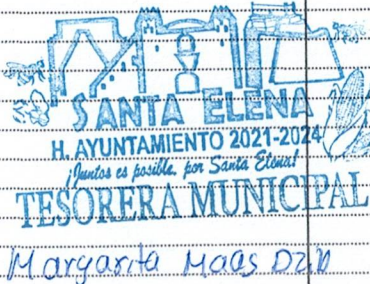 SANTA ELENA
H. AYUNTAMIENTO 2021-2024
¡Juntos es posible, por Santa Elena!
TESORERA MUNICIPAL
Margarita Maas